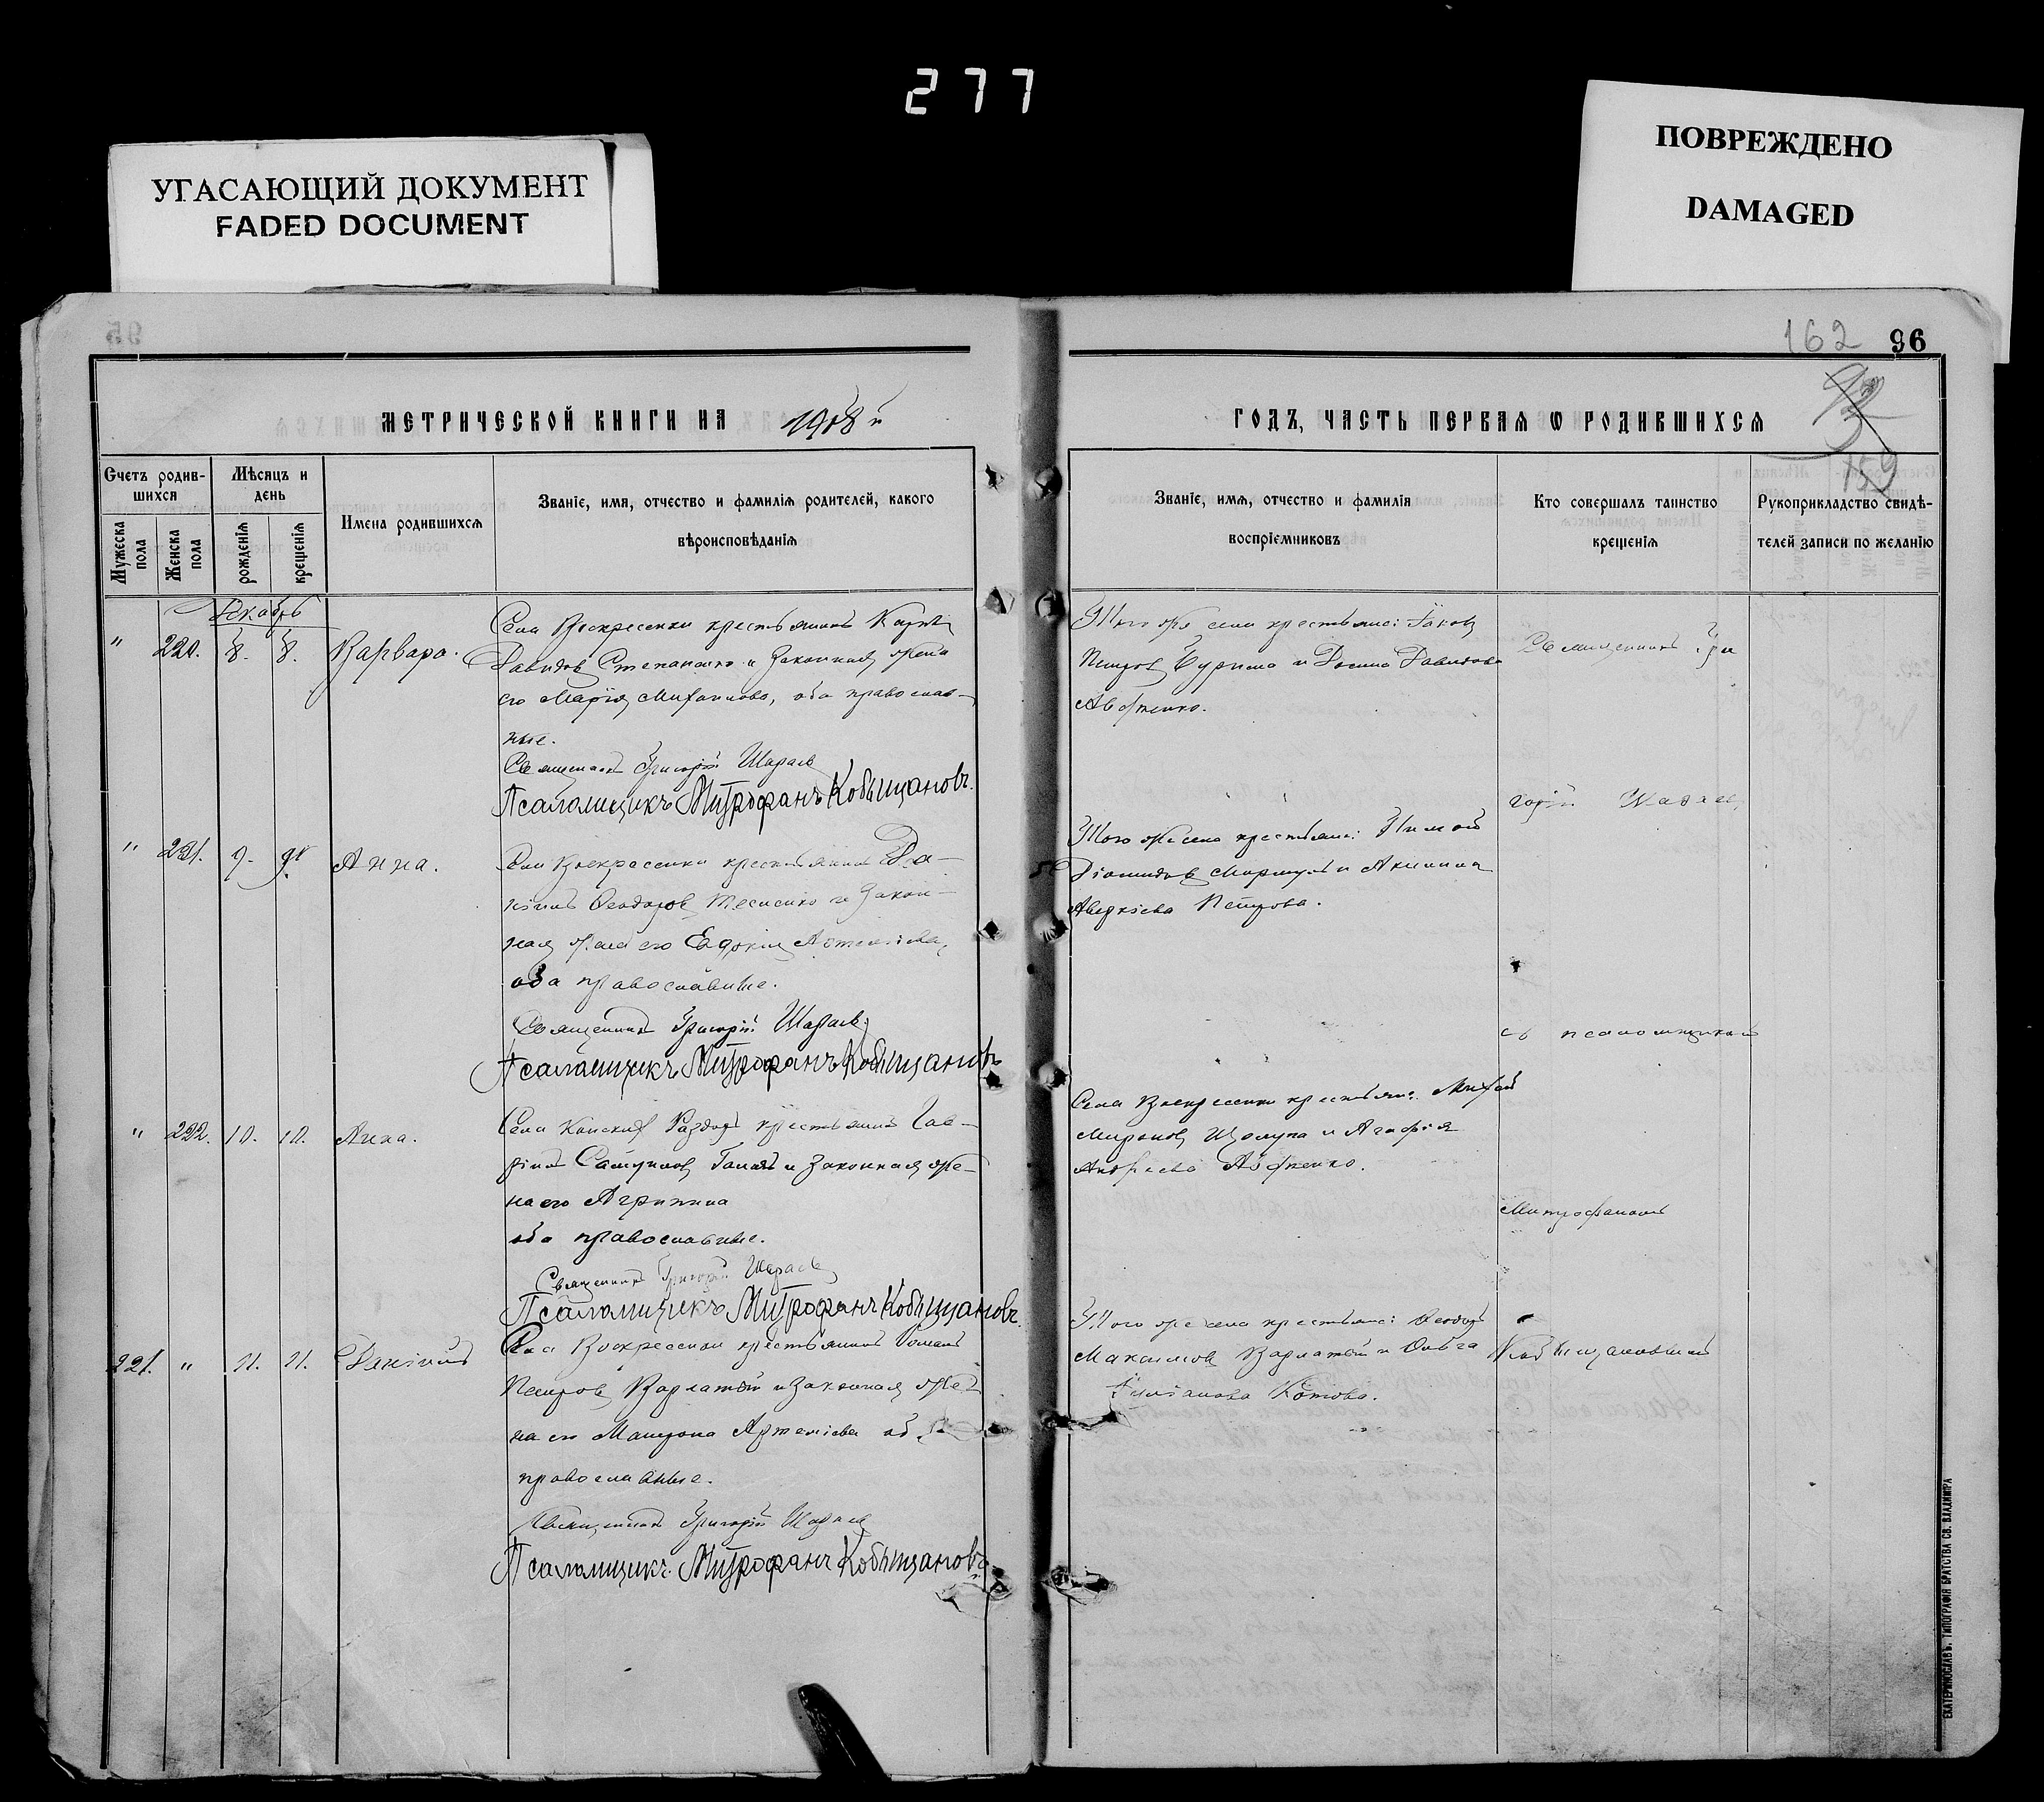 277
УГАСАЮЩИЙ ДОКУМЕНТ
FADED DOCUMENT
ПОВРЕЖДЕНО
DAMAGED
162 96
159
МЕТРИЧЕСКОЙ КНИГИ НА 1908 й
ГОДЪ, ЧАСТЬ ПЕРВАЯ Ѡ РОДИВШИХСЯ
Счетъ родив-
шихся
Мѣсяцъ и
день
Имена родившихся
Званіе, имя, отчество и фамилія родителей, какого
вѣроисповѣданія
Мужеска
пола
Женска
пола
рожденія
крещенія
Званіе, имя, отчество и фамилія
воспріемниковъ
Кто совершалъ таинство
крещенія
Рукоприкладство свидѣ-
телей записи по желанію
Декабрь
" 220. 8. 8. Варвара.
Села Воскресенки крестьянинъ
Давидов Степаненко и законная жена
его Марія Михаилова, оба православ-
ные.
Священникъ Григорій Шараев
Псаломщикъ Митрофанъ Кобыщановъ.
Того же села крестьяне: Іаков
Петров Бурима и Давидова
Авфненко.
Священникъ Гри
горій Шараев
" 221. 9. 9. Анна.
Села Воскресенки крестьянинъ Да-
ніилъ Феодоров и закон-
ная жена его Евдокия Артеміева,
оба православные.
Священникъ Григорій Шараев
Псаломщикъ Митрофанъ Кобыщановъ
Того же села крестьяне:
Діомидов и Акилина
Аверкіева Петрова.
съ псаломщикомъ
" 222. 10. 10. Анна.
Села Конскихъ Раздоръ крестьянинъ Гав-
ріилъ и законная же-
на его Агрипина
оба православные.
Священникъ Григорій Шараев
Псаломщикъ Митрофанъ Кобыщановъ.
Села Воскресенки крестьяне:
Миронов и Агафія
Андреева Авфненко.
Митрофаномъ
221. " 11. 11. Даніилъ
Села Воскресенки крестьянинъ Роман
Петров Варлатый и законная же-
на его Матрона Артеміева оба
православные.
Священникъ Григорій Шараев
Псаломщикъ Митрофанъ Кобыщановъ
Того же села крестьяне: Феодоръ
Максимов Варлатый и Ольга
Котова.
Кобыщановымъ
ЕКАТЕРИНОСЛАВЪ. ТИПОГРАФІЯ БРАТСТВА СВ. ВЛАДИМІРА